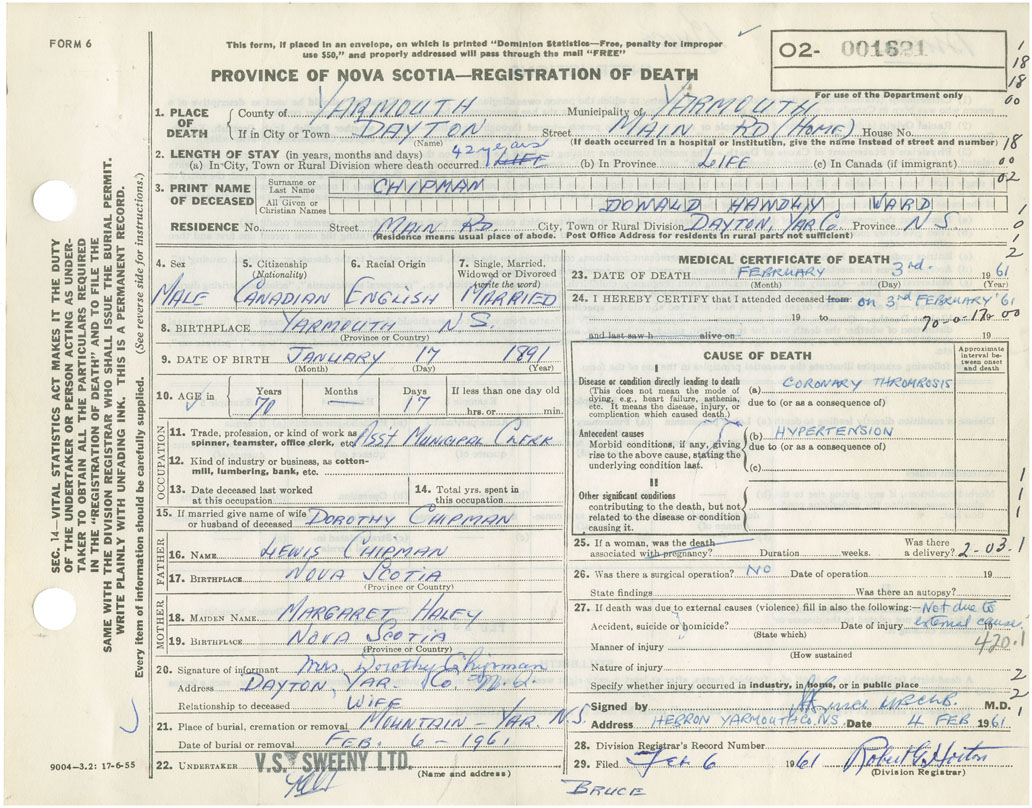 FORM 6
This form, if placed in an envelope, on which is printed "Dominion Statistics—Free, penalty for improper
use $50," and properly addressed will pass through the mail "FREE"
PROVINCE OF NOVA SCOTIA—REGISTRATION OF DEATH
02- 001621
For use of the Department only
1
18
18
00
18
02
1
0
1
2
SEC. 14—VITAL STATISTICS ACT MAKES IT THE DUTY
OF THE UNDERTAKER OR PERSON ACTING AS UNDER-
TAKER TO OBTAIN ALL THE PARTICULARS REQUIRED
IN THE "REGISTRATION OF DEATH" AND TO FILE THE
SAME WITH THE DIVISION REGISTRAR WHO SHALL ISSUE THE BURIAL PERMIT.
WRITE PLAINLY WITH UNFADING INK. THIS IS A PERMANENT RECORD.
Every item of information should be carefully supplied. (See reverse side for instructions.)
1. PLACE OF DEATH
County of YARMOUTH Municipality of YARMOUTH
If in City or Town DAYTON Street MAIN RD (HOME) House No.
(Name) (If death occurred in a hospital or institution, give the name instead of street and number)
2. LENGTH OF STAY (in years, months and days)
(a) In City, Town or Rural Division where death occurred 42 years LIFE (b) In Province LIFE (c) In Canada (if immigrant)
3. PRINT NAME OF DECEASED
Surname or Last Name CHIPMAN
All Given or Christian Names DONALD HANDLY WARD
RESIDENCE No. Street MAIN RD. City, Town or Rural Division DAYTON, YAR. CO. Province N.S.
(Residence means usual place of abode. Post Office Address for residents in rural parts not sufficient)
4. Sex MALE
5. Citizenship (Nationality) CANADIAN
6. Racial Origin ENGLISH
7. Single, Married, Widowed or Divorced (write the word) MARRIED
8. BIRTHPLACE YARMOUTH N.S.
(Province or Country)
9. DATE OF BIRTH JANUARY 17 1891
(Month) (Day) (Year)
10. AGE in Years 70 Months — Days 17 If less than one day old hrs. or min.
OCCUPATION
11. Trade, profession, or kind of work as
spinner, teamster, office clerk, etc. Asst MUNICIPAL CLERK
12. Kind of industry or business, as cotton-
mill, lumbering, bank, etc.
13. Date deceased last worked
at this occupation
14. Total yrs. spent in
this occupation
15. If married give name of wife
or husband of deceased DOROTHY CHIPMAN
FATHER
16. NAME LEWIS CHIPMAN
17. BIRTHPLACE NOVA SCOTIA
(Province or Country)
MOTHER
18. MAIDEN NAME MARGARET HALEY
19. BIRTHPLACE NOVA SCOTIA
(Province or Country)
20. Signature of informant Mrs. Dorothy Chipman
Address DAYTON, YAR. CO. N.S.
Relationship to deceased WIFE
21. Place of burial, cremation or removal MOUNTAIN - YAR. N.S.
Date of burial or removal FEB. 6 - 1961
22. UNDERTAKER V.S. SWEENY LTD.
(Name and address)
9004—3.2: 17-6-55
MEDICAL CERTIFICATE OF DEATH
23. DATE OF DEATH FEBRUARY 3rd. 1961
(Month) (Day)
24. I HEREBY CERTIFY that I attended deceased from: on 3rd FEBRUARY '61
19 to 70-0-17-00
and last saw h alive on 19
CAUSE OF DEATH
Approximate interval between onset and death
I
Disease or condition directly leading to death
(This does not mean the mode of
dying, e.g., heart failure, asthenia,
etc. It means the disease, injury, or
complication which caused death.)
(a) CORONARY THROMBOSIS
due to (or as a consequence of)
Antecedent causes
Morbid conditions, if any, giving
rise to the above cause, stating the
underlying condition last.
(b) HYPERTENSION
due to (or as a consequence of)
(c)
II
Other significant conditions
contributing to the death, but not
related to the disease or condition
causing it.
1
1
1
1
25. If a woman, was the death
associated with pregnancy? Duration weeks. Was there
a delivery? 2-03.1
26. Was there a surgical operation? NO Date of operation 19
State findings Was there an autopsy?
27. If death was due to external causes (violence) fill in also the following:—Not due to
external cause.
Accident, suicide or homicide? Date of injury 19
(State which)
420.1
Manner of injury
(How sustained
Nature of injury
Specify whether injury occurred in industry, in home, or in public place
2
2
1
Signed by M.D.
Address HERRON YARMOUTH CO. N.S. Date 4 FEB 1961.
28. Division Registrar's Record Number
29. Filed Feb 6 1961 Robert G. Horton
(Division Registrar)
BRUCE